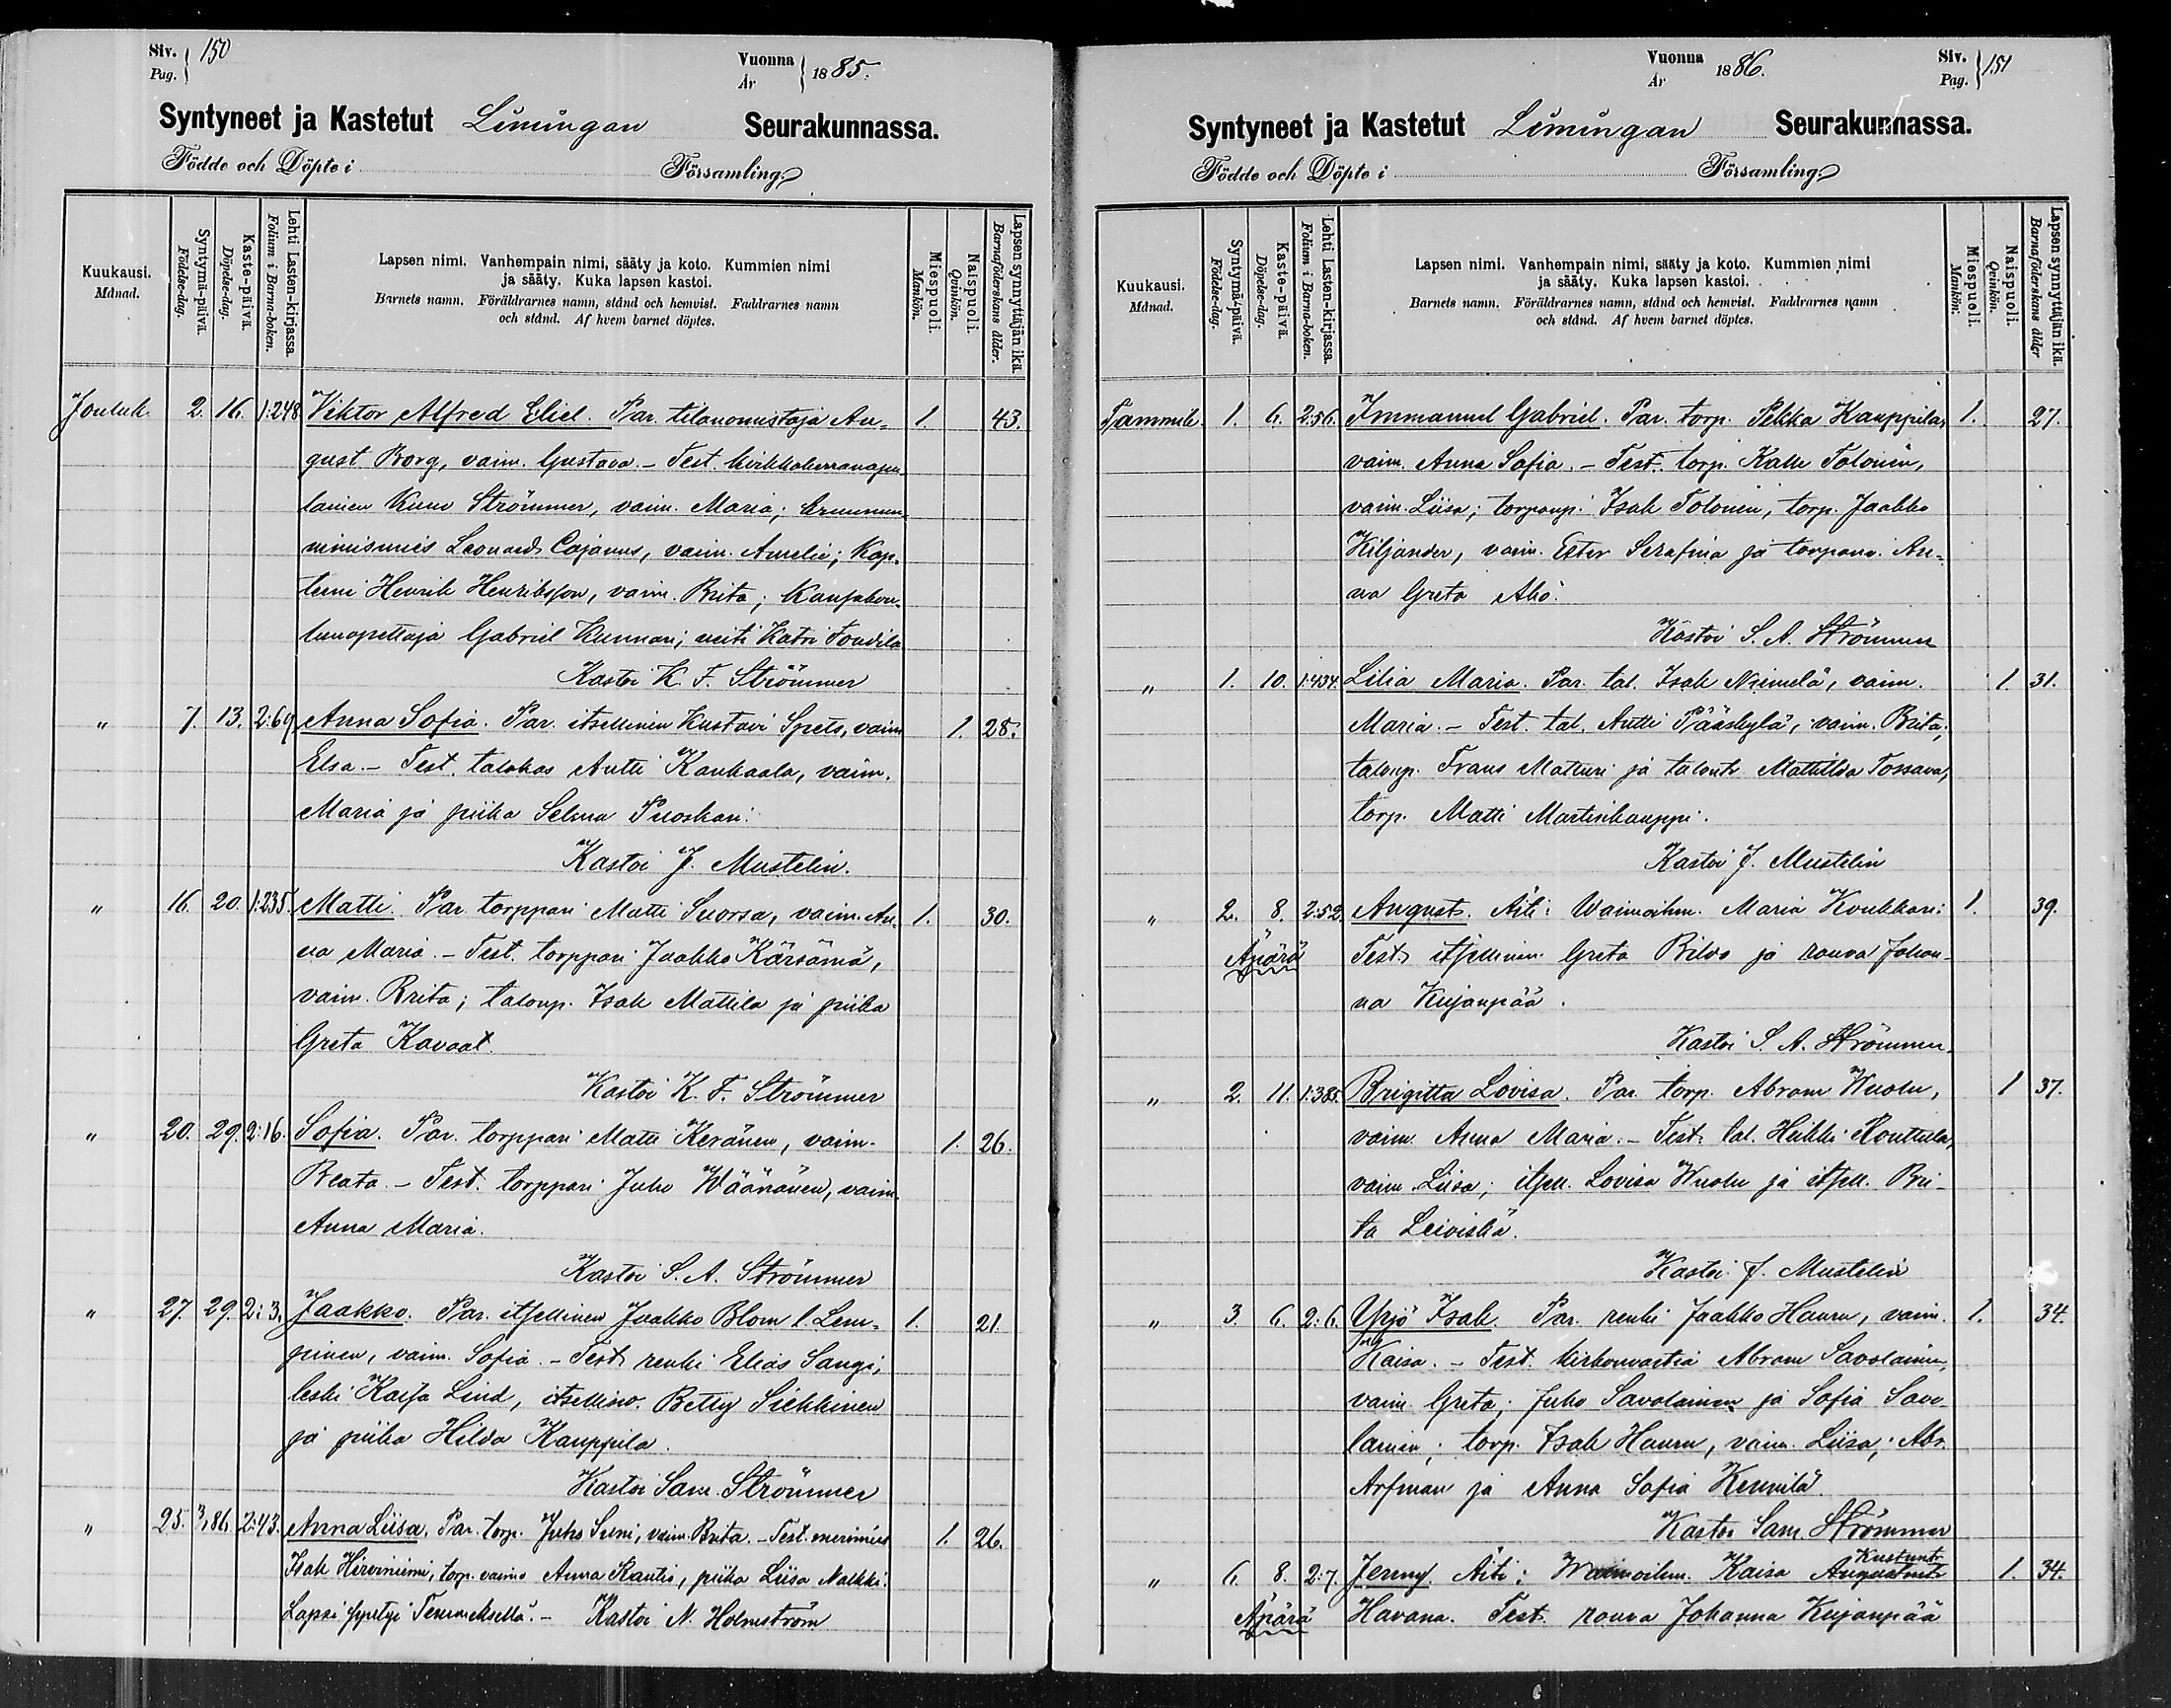 Siv. 150
Pag.
Vuonna
År 1885.
Syntyneet ja Kastetut Limingan Seurakunnassa.
Födde och Döpte i Församling.
Kuukausi.
Månad.
Syntymä-päivä.
Födelse-dag.
Kaste-päivä.
Döpelse-dag.
Lehti Lasten-kirjassa.
Folium i Barna-boken.
Lapsen nimi. Vanhempain nimi, sääty ja koto. Kummien nimi
ja sääty. Kuka lapsen kastoi.
Barnets namn. Föräldrarnes namn, stånd och hemvist. Faddrarnes namn
och stånd. Af hvem barnet döptes.
Miespuoli.
Mankön.
Naispuoli.
Qvinkön.
Lapsen synnyttäjän ikä.
Barnaföderskans ålder.
Jouluk. 2. 16. 1:248. Viktor Alfred Eliel. Par. tilanomistaja Au= 1. 43.
gust Borg, vaim. Gustava. - Test. kirkkoherranapu=
lainen Strömmer, vaim. Maria;
Leonard Cajanus, vaim. Amelie; Kap=
teeni Henrik Henriksson, vaim. Brita;
Gabriel Kunnari; neiti Katri
Kastoi K. F. Strömmer
" 7. 13. 2:69. Anna Sofia. Par. itsellinen Kustavi Spets, vaim. 1. 28.
Elsa. - Test. talokas Antti Kankaala, vaim.
Maria ja piika Selma Puoskari.
Kastoi J. Mustelin.
" 16. 20. 1:235. Matti. Par. torppari Matti Suorsa, vaim. An= 1. 30.
na Maria. - Test. torppari Jaakko Kärsämä,
vaim. Brita; talonp. Isak Mattila ja piika
Greta Kavaat.
Kastoi K. F. Strömmer
" 20. 29. 2:16. Sofia. Par. torppari Matti Keränen, vaim. 1. 26.
Beata. - Test. torppari Juho Wäänänen, vaim.
Anna Maria.
Kastoi S. A. Strömmer
" 27. 29. 2:3. Jaakko. Par. itsellinen Jaakko Blom l. Lem= 1. 21.
pinen, vaim. Sofia. - Test. renki Elias Sangi;
leski Kaisa Lind, itsellisv. Betty Siekkinen
ja piika Hilda Kauppila.
Kastoi Sam. Strömmer
" 25. 3/186 2:43. Anna Liisa. Par. torp. Juho Suni, vaim. Brita. - Test. merimies 1. 26.
Isak Hirviniemi, torp. vaimo Anna Rautio, piika Liisa Nalkki.
Lapsi syntyi Temmeksellä. - Kastoi N. Holmström
Vuonna
År 1886.
Siv. 151
Pag.
Syntyneet ja Kastetut Limingan Seurakunnassa.
Födde och Döpte i Församling.
Kuukausi.
Månad.
Syntymä-päivä.
Födelse-dag.
Kaste-päivä.
Döpelse-dag.
Lehti Lasten-kirjassa.
Folium i Barna-boken.
Lapsen nimi. Vanhempain nimi, sääty ja koto. Kummien nimi
ja sääty. Kuka lapsen kastoi.
Barnets namn. Föräldrarnes namn, stånd och hemvist. Faddrarnes namn
och stånd. Af hvem barnet döptes.
Miespuoli.
Mankön.
Naispuoli.
Qvinkön.
Lapsen synnyttäjän ikä.
Barnaföderskans ålder
Tammik. 1. 6. 2:56. Immanuel Gabriel. Par. torp. Pekka Kauppila, 1. 27.
vaim. Anna Sofia. - Test. torp. Kalle Tolonen,
vaim. Liisa; torpanp. Isak Tolonen, torp. Jaakko
Kiljander, vaim. Ester Serafina ja torpanv. An=
na Greta Aho.
Kastoi S. A. Strömmer
" 1. 10. 1:434. Lilia Maria. Par. tal. Isak Niemelä, vaim. 1. 31.
Maria. - Test. tal. Antti Pääskylä, vaim. Brita;
talonp. Frans Matturi ja talontr Mathilda Tossava,
torp. Matti Martinkauppi.
Kastoi J. Mustelin
" 2. 8. 2:52. August. Äiti: Waimoihm. Maria Koukkari: 1. 39.
Äpärä Test. itsellinen Greta ja rouva Johan-
na Kujanpää.
Kastoi S. A. Strömmer.
" 2. 11. 1:385. Brigitta Lovisa. Par. torp. Abram Wuolu, 1 37.
vaim Anna Maria. - Test. tal. Heikki Routtula,
vaim. Liisa; itsell. Lovisa Wuolu ja itsell. Bri-
ta Leiviskä.
Kastoi J. Mustelin
" 3. 6. 2:6. Yrjö Isak. Par. renki Jaakko Hauru, vaim. 1. 34.
Kaisa. - Test. kirkonvartia Abram Savolainen,
vaim Greta; Juho Savolainen ja Sofia Savo-
lainen; torp. Isak Hauru, vaim. Liisa; Abr.
Arfman ja Anna Sofia Kennilä.
Kastoi Sam. Strömmer
Kustuntr
" 6. 8. 2:7. Jenny. Äiti: Waimoihm. Kaisa Augustintr 1. 34.
Äpärä Havana. Test. rouva Johanna Kujanpää